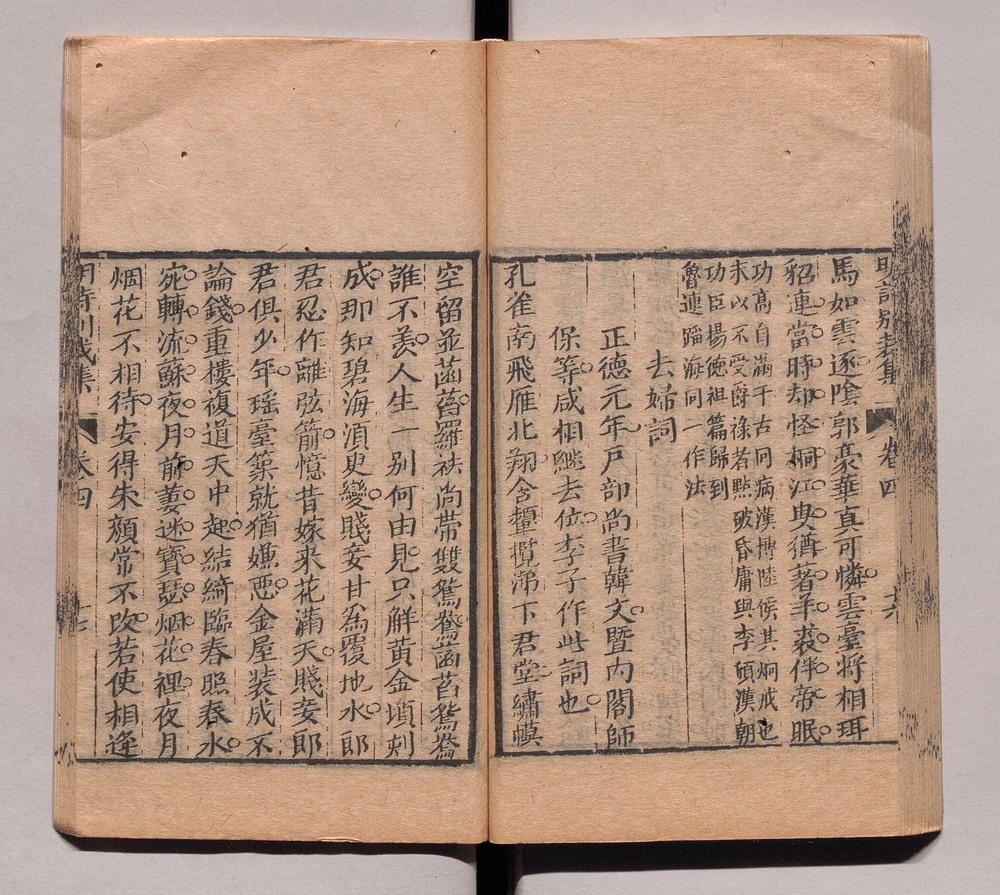 明詩別裁集 卷四 十六
馬如雲逐陰郭豪華真可憐雲臺將相珥
貂連當時却怪桐江叟猶著羊裘伴帝眠
功高自滿千古同病漢博陸候其炯戒也
末以不受爵祿者點破昏庸與李碩漢朝
功臣楊德祖篇歸到
魯連蹈海同一作法
去婦詞
正德元年戸部尚書韓文暨內閣師
保等咸相繼去位李子作此詞也
孔雀南飛雁北翔含顰攬涕下君堂繡幙
空留並菡萏羅袂尚帶雙鴛鴦菡萏鴛鴦
誰不羨人生一別何由見只解黃金頃刻
成那知碧海須臾變賤妾甘為覆地水郎
君忍作離弦箭憶昔嫁來花滿天賤妾郎
君俱少年瑶臺築就猶嫌惡金屋装成不
論錢重樓複道天中起結綺臨春照春水
宛轉流蘇夜月前萋迷寶瑟烟花裡夜月
烟花不相待安得朱顏常不改若使相逢
明詩別裁集 卷四 十七